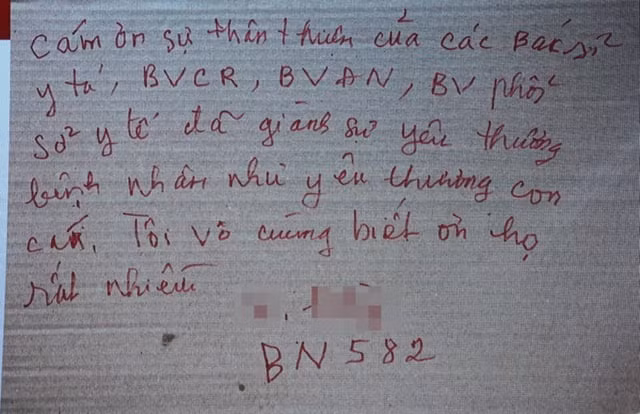 Cám ơn sự thân thiện của các Bác sĩ
y tá, BVCR, BVAN, BV phổi
Sở y tế đã giành sự yêu thương
bệnh nhân như yêu thương con
cái. Tôi vô cùng biết ơn họ
rất nhiều
BN 582